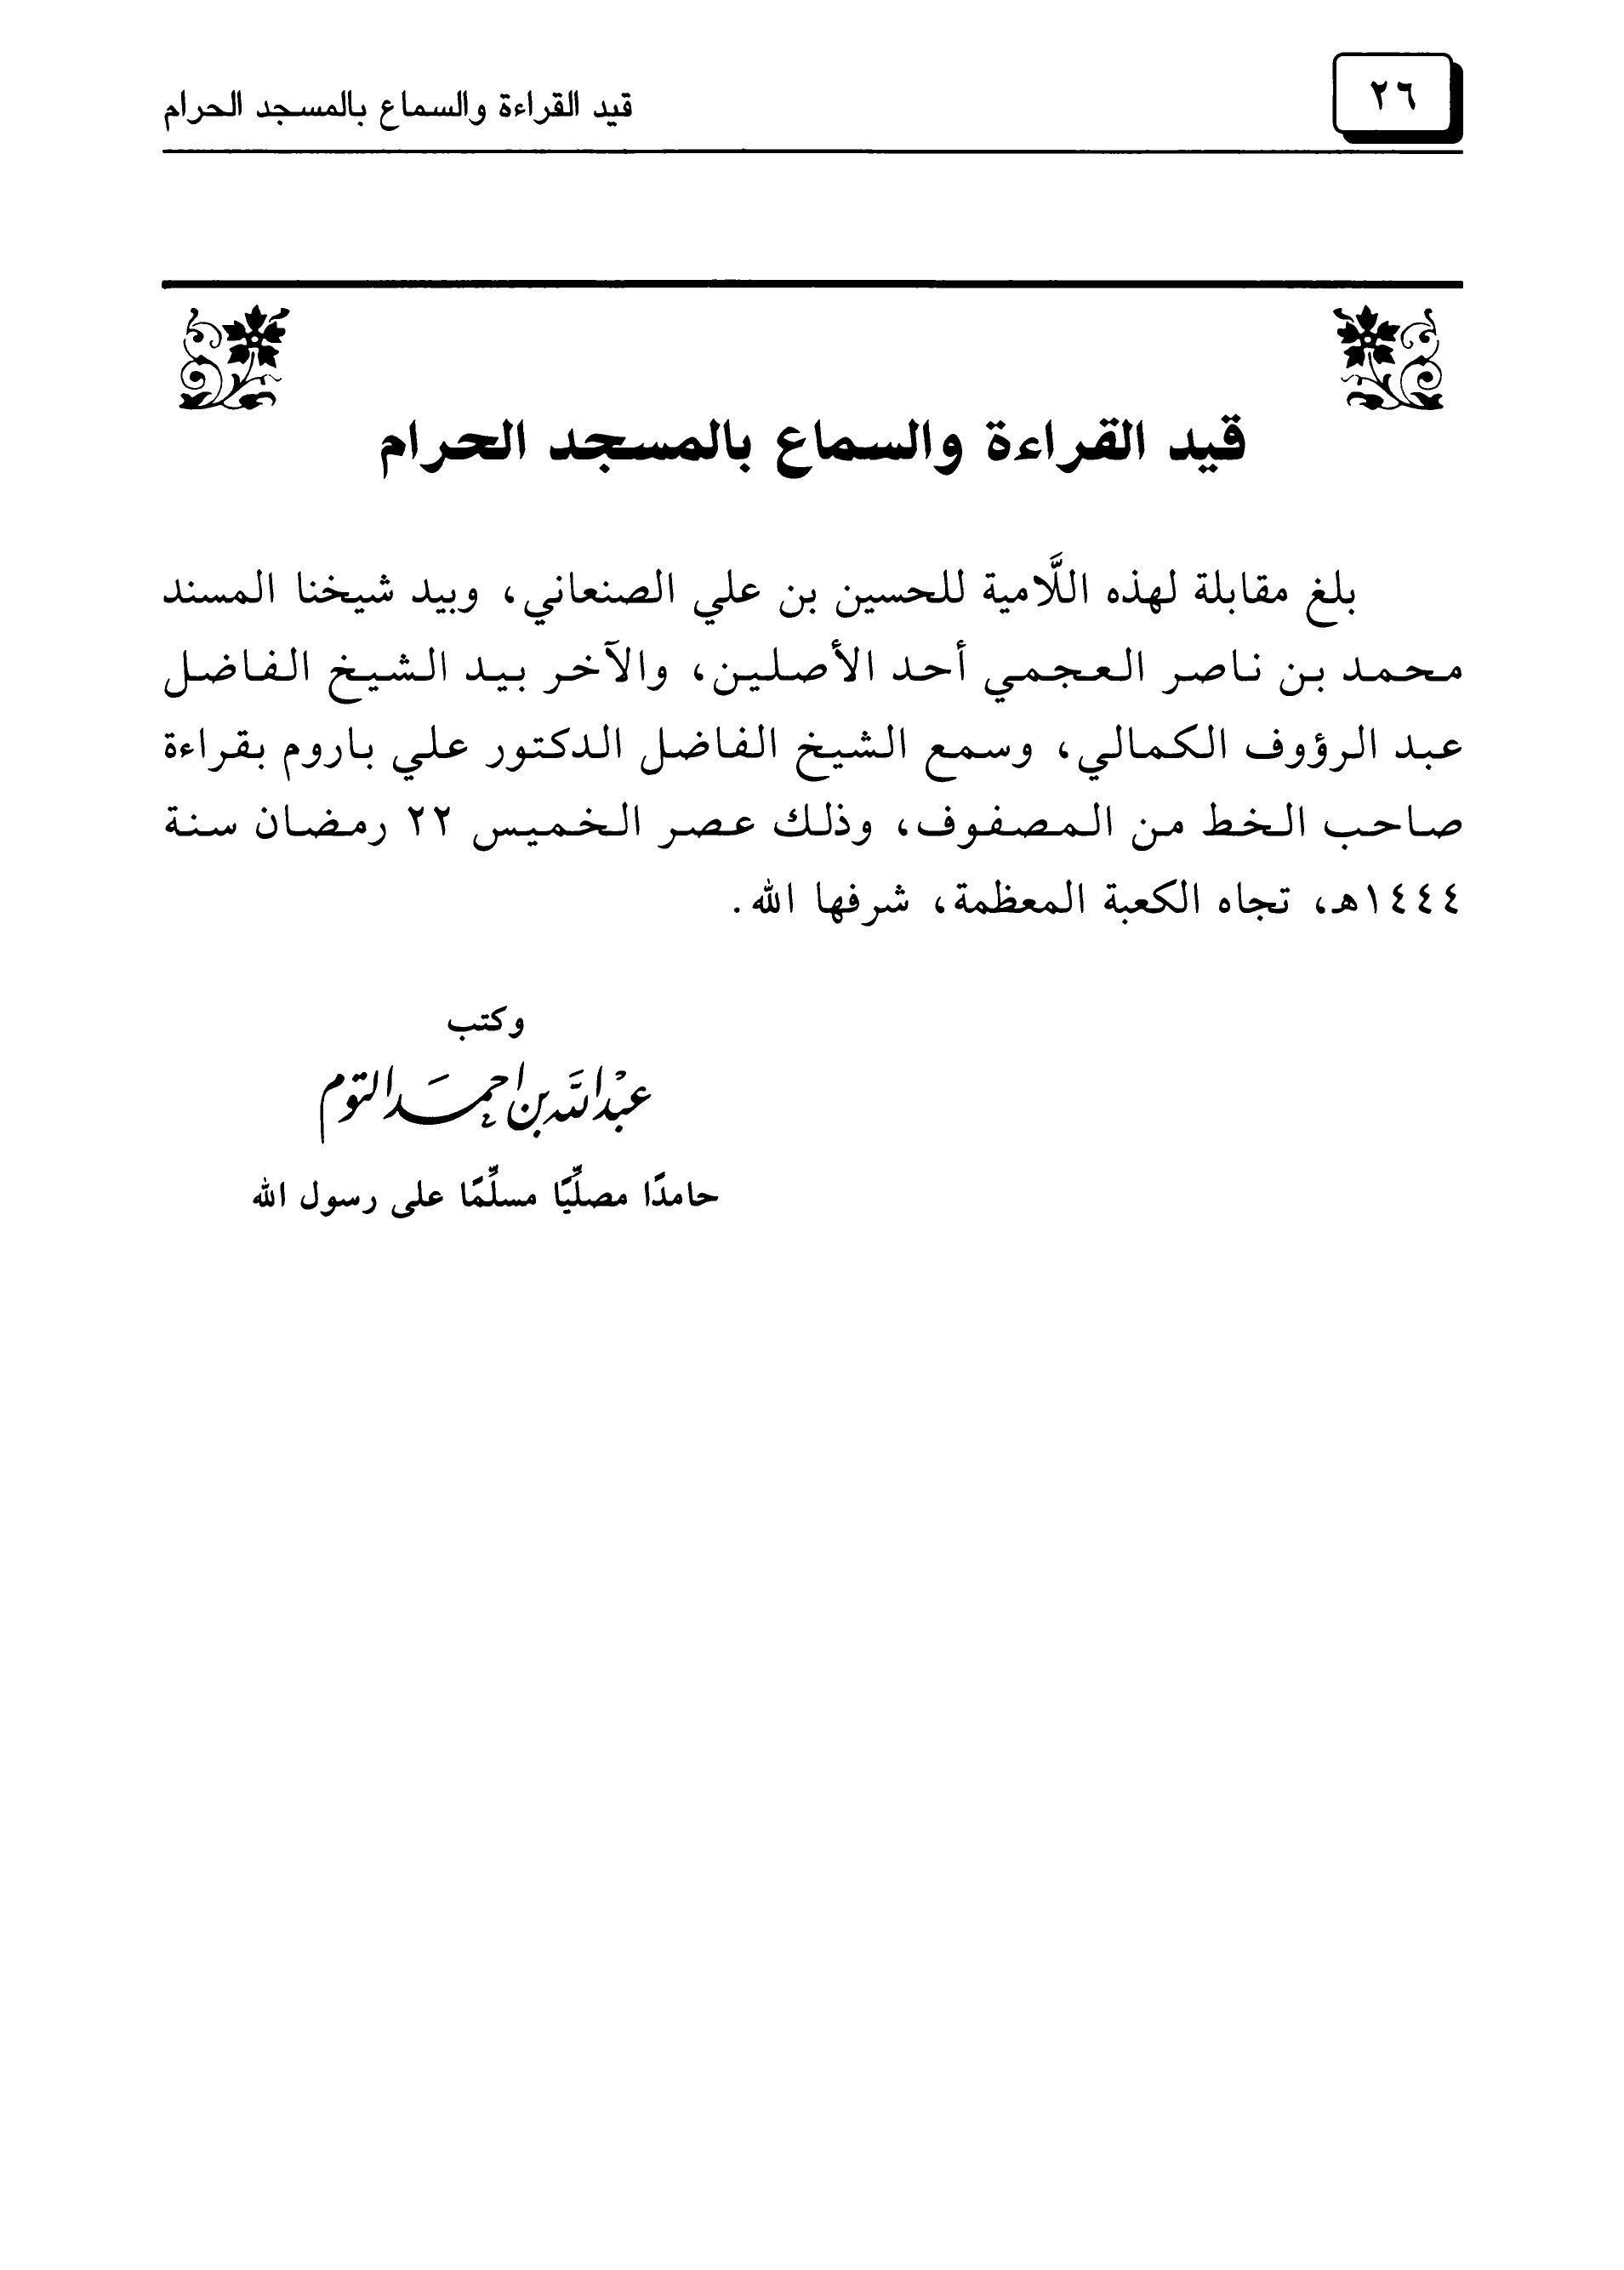 ٢٦
قيد القراءة والسماع بالمسجد الحرام
قيد القراءة والسماع بالمسجد الحرام
بلغ مقابلة لهذه اللَّامية للحسين بن علي الصنعاني، وبيد شيخنا المسند
محمد بن ناصر العجمي أحد الأصلين، والآخر بيد الشيخ الفاضل
عبد الرؤوف الكمالي، وسمع الشيخ الفاضل الدكتور علي باروم بقراءة
صاحب الخط من المصفوف، وذلك عصر الخميس ٢٢ رمضان سنة
١٤٤٤هـ، تجاه الكعبة المعظمة، شرفها الله.
وكتب
عبد الله بن احمد التوم
حامدًا مصلِّيًا مسلِّمًا على رسول الله